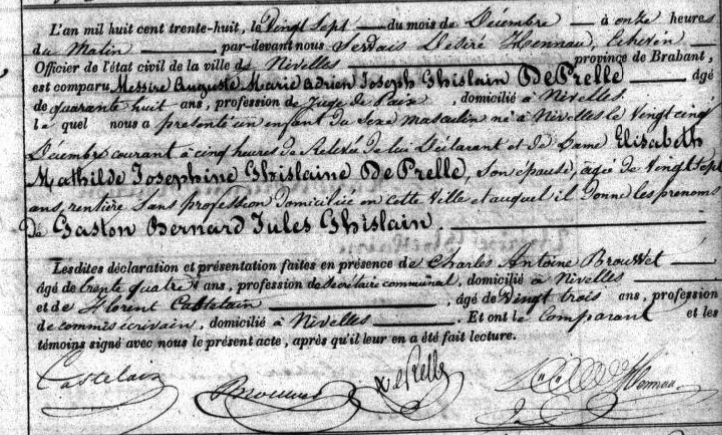 L'an mil huit cent trente-huit, le Vingt Sept du mois de Décembre à onze heures
du Matin par-devant nous Servais Désiré Hennau, Echevin
Officier de l'état civil de la ville de Nivelles province de Brabant,
est comparu Messire Auguste Marie Adrien Joseph Ghislain De Prelle âgé
de quarante huit ans, profession de Juge de Paix, domicilié à Nivelles.
le quel nous a présenté un enfant du Sexe masculin né à Nivelles le Vingt cinq
Décembre courant à cinq heures de Relevée de lui Déclarant et de Dame Elisabeth
Mathilde Josephine Ghislaine De Prelle, son épouse, agée de Vingt sept
ans, rentière Sans profession domiciliée en cette Ville et auquel il donne les prenoms
De Gaston Bernard Jules Ghislain.
Lesdites déclaration et présentation faites en présence de Charles Antoine Brouwet
âgé de trente quatre ans, profession de Secretaire communal, domicilié à Nivelles
et de Florent Castelain, âgé de Vingt trois ans, profession
de commis écrivain, domicilié à Nivelles. Et ont le Comparant et les
témoins signé avec nous le présent acte, après qu'il leur en a été fait lecture.
Castelain Brouwet De Prelle Hennau